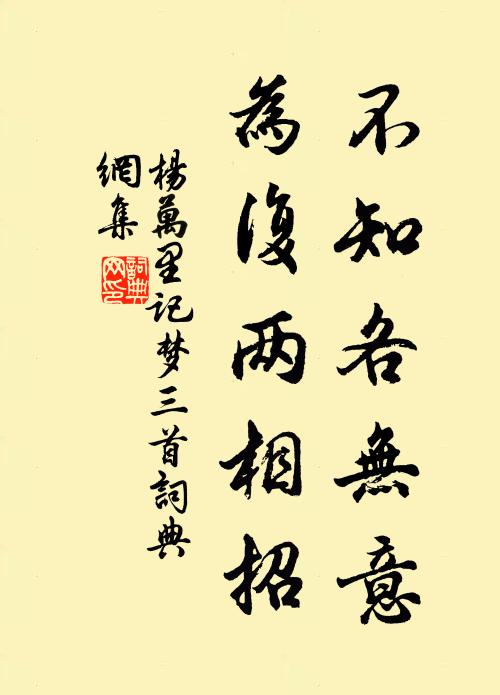 不知各無意
為復两相招
楊萬里記梦三首詞典
網集
詞典網印